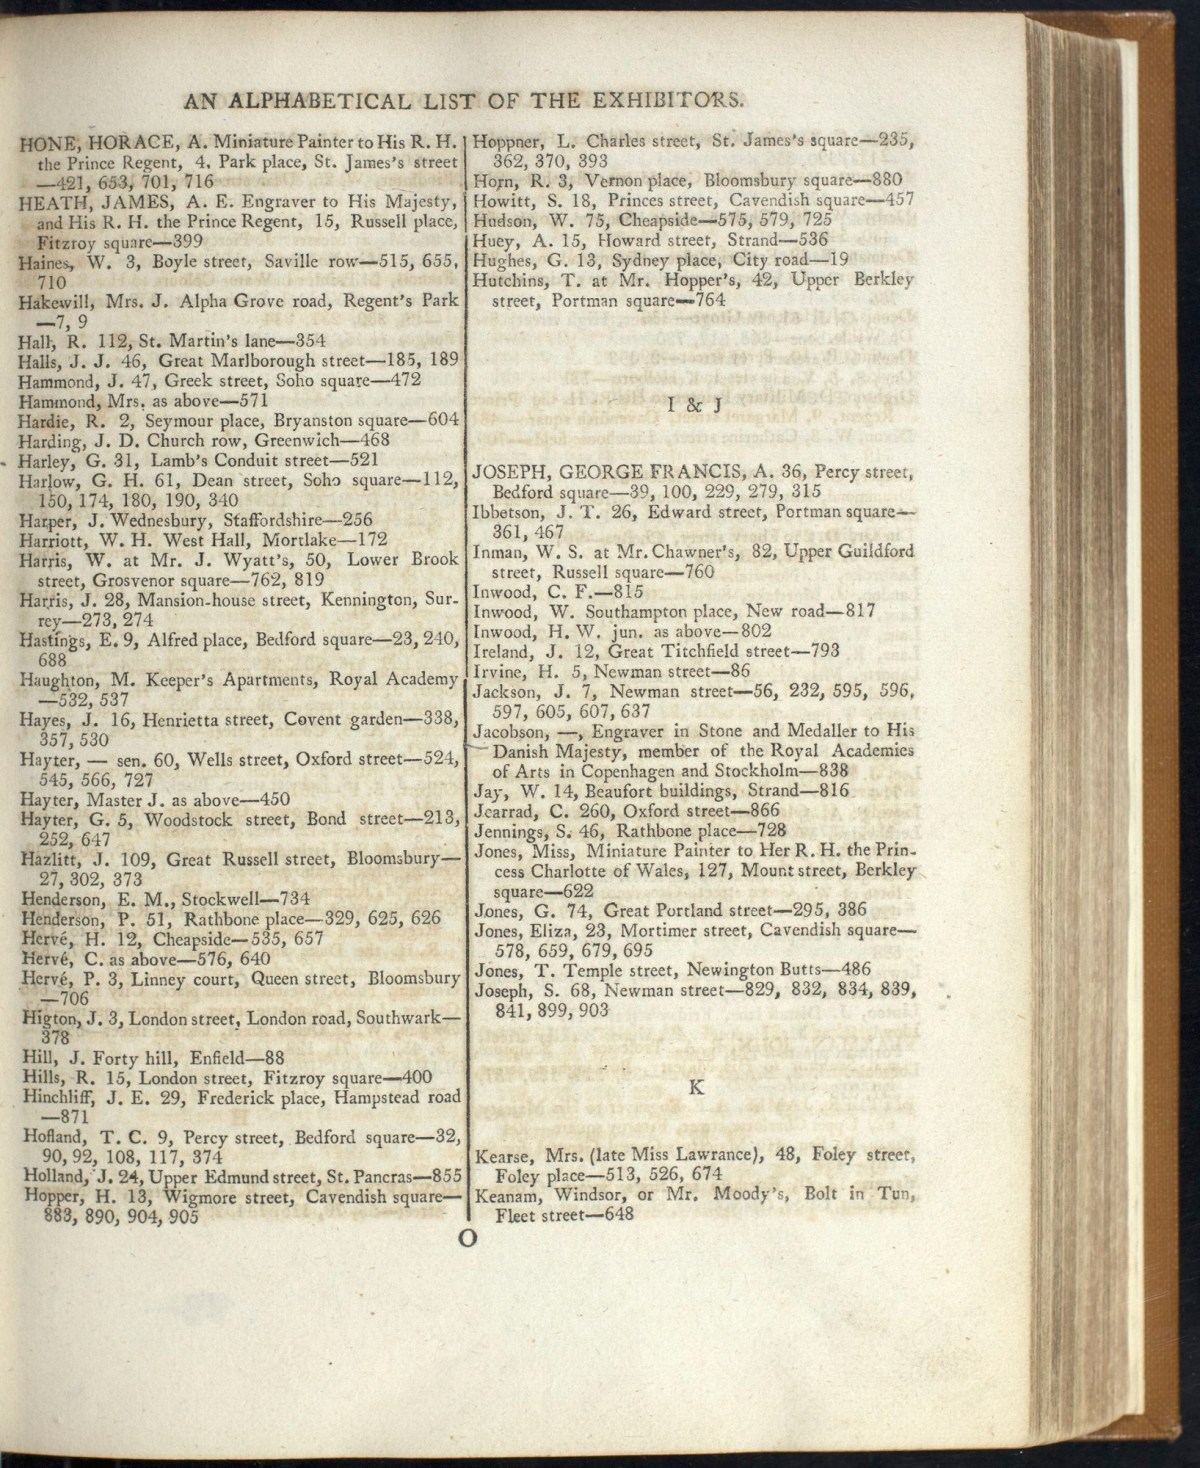 AN ALPHABETICAL LIST OF THE EXHIBITORS.
HONE, HORACE, A. Miniature Painter to His R. H.
the Prince Regent, 4, Park place, St. James's street
—421, 653, 701, 716
HEATH, JAMES, A. E. Engraver to His Majesty,
and His R. H. the Prince Regent, 15, Russell place,
Fitzroy square—399
Haines, W. 3, Boyle street, Saville row—515, 655,
710
Hakewill, Mrs. J. Alpha Grove road, Regent's Park
—7, 9
Hall, R. 112, St. Martin's lane—354
Halls, J. J. 46, Great Marlborough street—185, 189
Hammond, J. 47, Greek street, Soho square—472
Hammond, Mrs. as above—571
Hardie, R. 2, Seymour place, Bryanston square—604
Harding, J. D. Church row, Greenwich—468
Harley, G. 31, Lamb's Conduit street—521
Harlow, G. H. 61, Dean street, Soho square—112,
150, 174, 180, 190, 340
Harper, J. Wednesbury, Staffordshire—256
Harriott, W. H. West Hall, Mortlake—172
Harris, W. at Mr. J. Wyatt's, 50, Lower Brook
street, Grosvenor square—762, 819
Harris, J. 28, Mansion-house street, Kennington, Sur-
rey—273, 274
Hastings, E. 9, Alfred place, Bedford square—23, 240,
688
Haughton, M. Keeper's Apartments, Royal Academy
—532, 537
Hayes, J. 16, Henrietta street, Covent garden—338,
357, 530
Hayter, — sen. 60, Wells street, Oxford street—524,
545, 566, 727
Hayter, Master J. as above—450
Hayter, G. 5, Woodstock street, Bond street—213,
252, 647
Hazlitt, J. 109, Great Russell street, Bloomsbury—
27, 302, 373
Henderson, E. M., Stockwell—734
Henderson, P. 51, Rathbone place—329, 625, 626
Hervé, H. 12, Cheapside—535, 657
Hervé, C. as above—576, 640
Hervé, P. 3, Linney court, Queen street, Bloomsbury
—706
Higton, J. 3, London street, London road, Southwark—
378
Hill, J. Forty hill, Enfield—88
Hills, R. 15, London street, Fitzroy square—400
Hinchliff, J. E. 29, Frederick place, Hampstead road
—871
Hofland, T. C. 9, Percy street, Bedford square—32,
90, 92, 108, 117, 374
Holland, J. 24, Upper Edmund street, St. Pancras—855
Hopper, H. 13, Wigmore street, Cavendish square—
883, 890, 904, 905
Hoppner, L. Charles street, St. James's square—235,
362, 370, 393
Horn, R. 3, Vernon place, Bloomsbury square—880
Howitt, S. 18, Princes street, Cavendish square—457
Hudson, W. 75, Cheapside—575, 579, 725
Huey, A. 15, Howard street, Strand—536
Hughes, G. 13, Sydney place, City road—19
Hutchins, T. at Mr. Hopper's, 42, Upper Berkley
street, Portman square—764
I & J
JOSEPH, GEORGE FRANCIS, A. 36, Percy street,
Bedford square—39, 100, 229, 279, 315
Ibbetson, J. T. 26, Edward street, Portman square—
361, 467
Inman, W. S. at Mr. Chawner's, 82, Upper Guildford
street, Russell square—760
Inwood, C. F.—815
Inwood, W. Southampton place, New road—817
Inwood, H. W. jun. as above—802
Ireland, J. 12, Great Titchfield street—793
Irvine, H. 5, Newman street—86
Jackson, J. 7, Newman street—56, 232, 595, 596,
597, 605, 607, 637
Jacobson, —, Engraver in Stone and Medaller to His
Danish Majesty, member of the Royal Academies
of Arts in Copenhagen and Stockholm—838
Jay, W. 14, Beaufort buildings, Strand—816
Jearrad, C. 260, Oxford street—866
Jennings, S. 46, Rathbone place—728
Jones, Miss, Miniature Painter to Her R. H. the Prin-
cess Charlotte of Wales, 127, Mount street, Berkley
square—622
Jones, G. 74, Great Portland street—295, 386
Jones, Eliza, 23, Mortimer street, Cavendish square—
578, 659, 679, 695
Jones, T. Temple street, Newington Butts—486
Joseph, S. 68, Newman street—829, 832, 834, 839,
841, 899, 903
K
Kearse, Mrs. (late Miss Lawrance), 48, Foley street,
Foley place—513, 526, 674
Keanam, Windsor, or Mr. Moody's, Bolt in Tun,
Fleet street—648
O